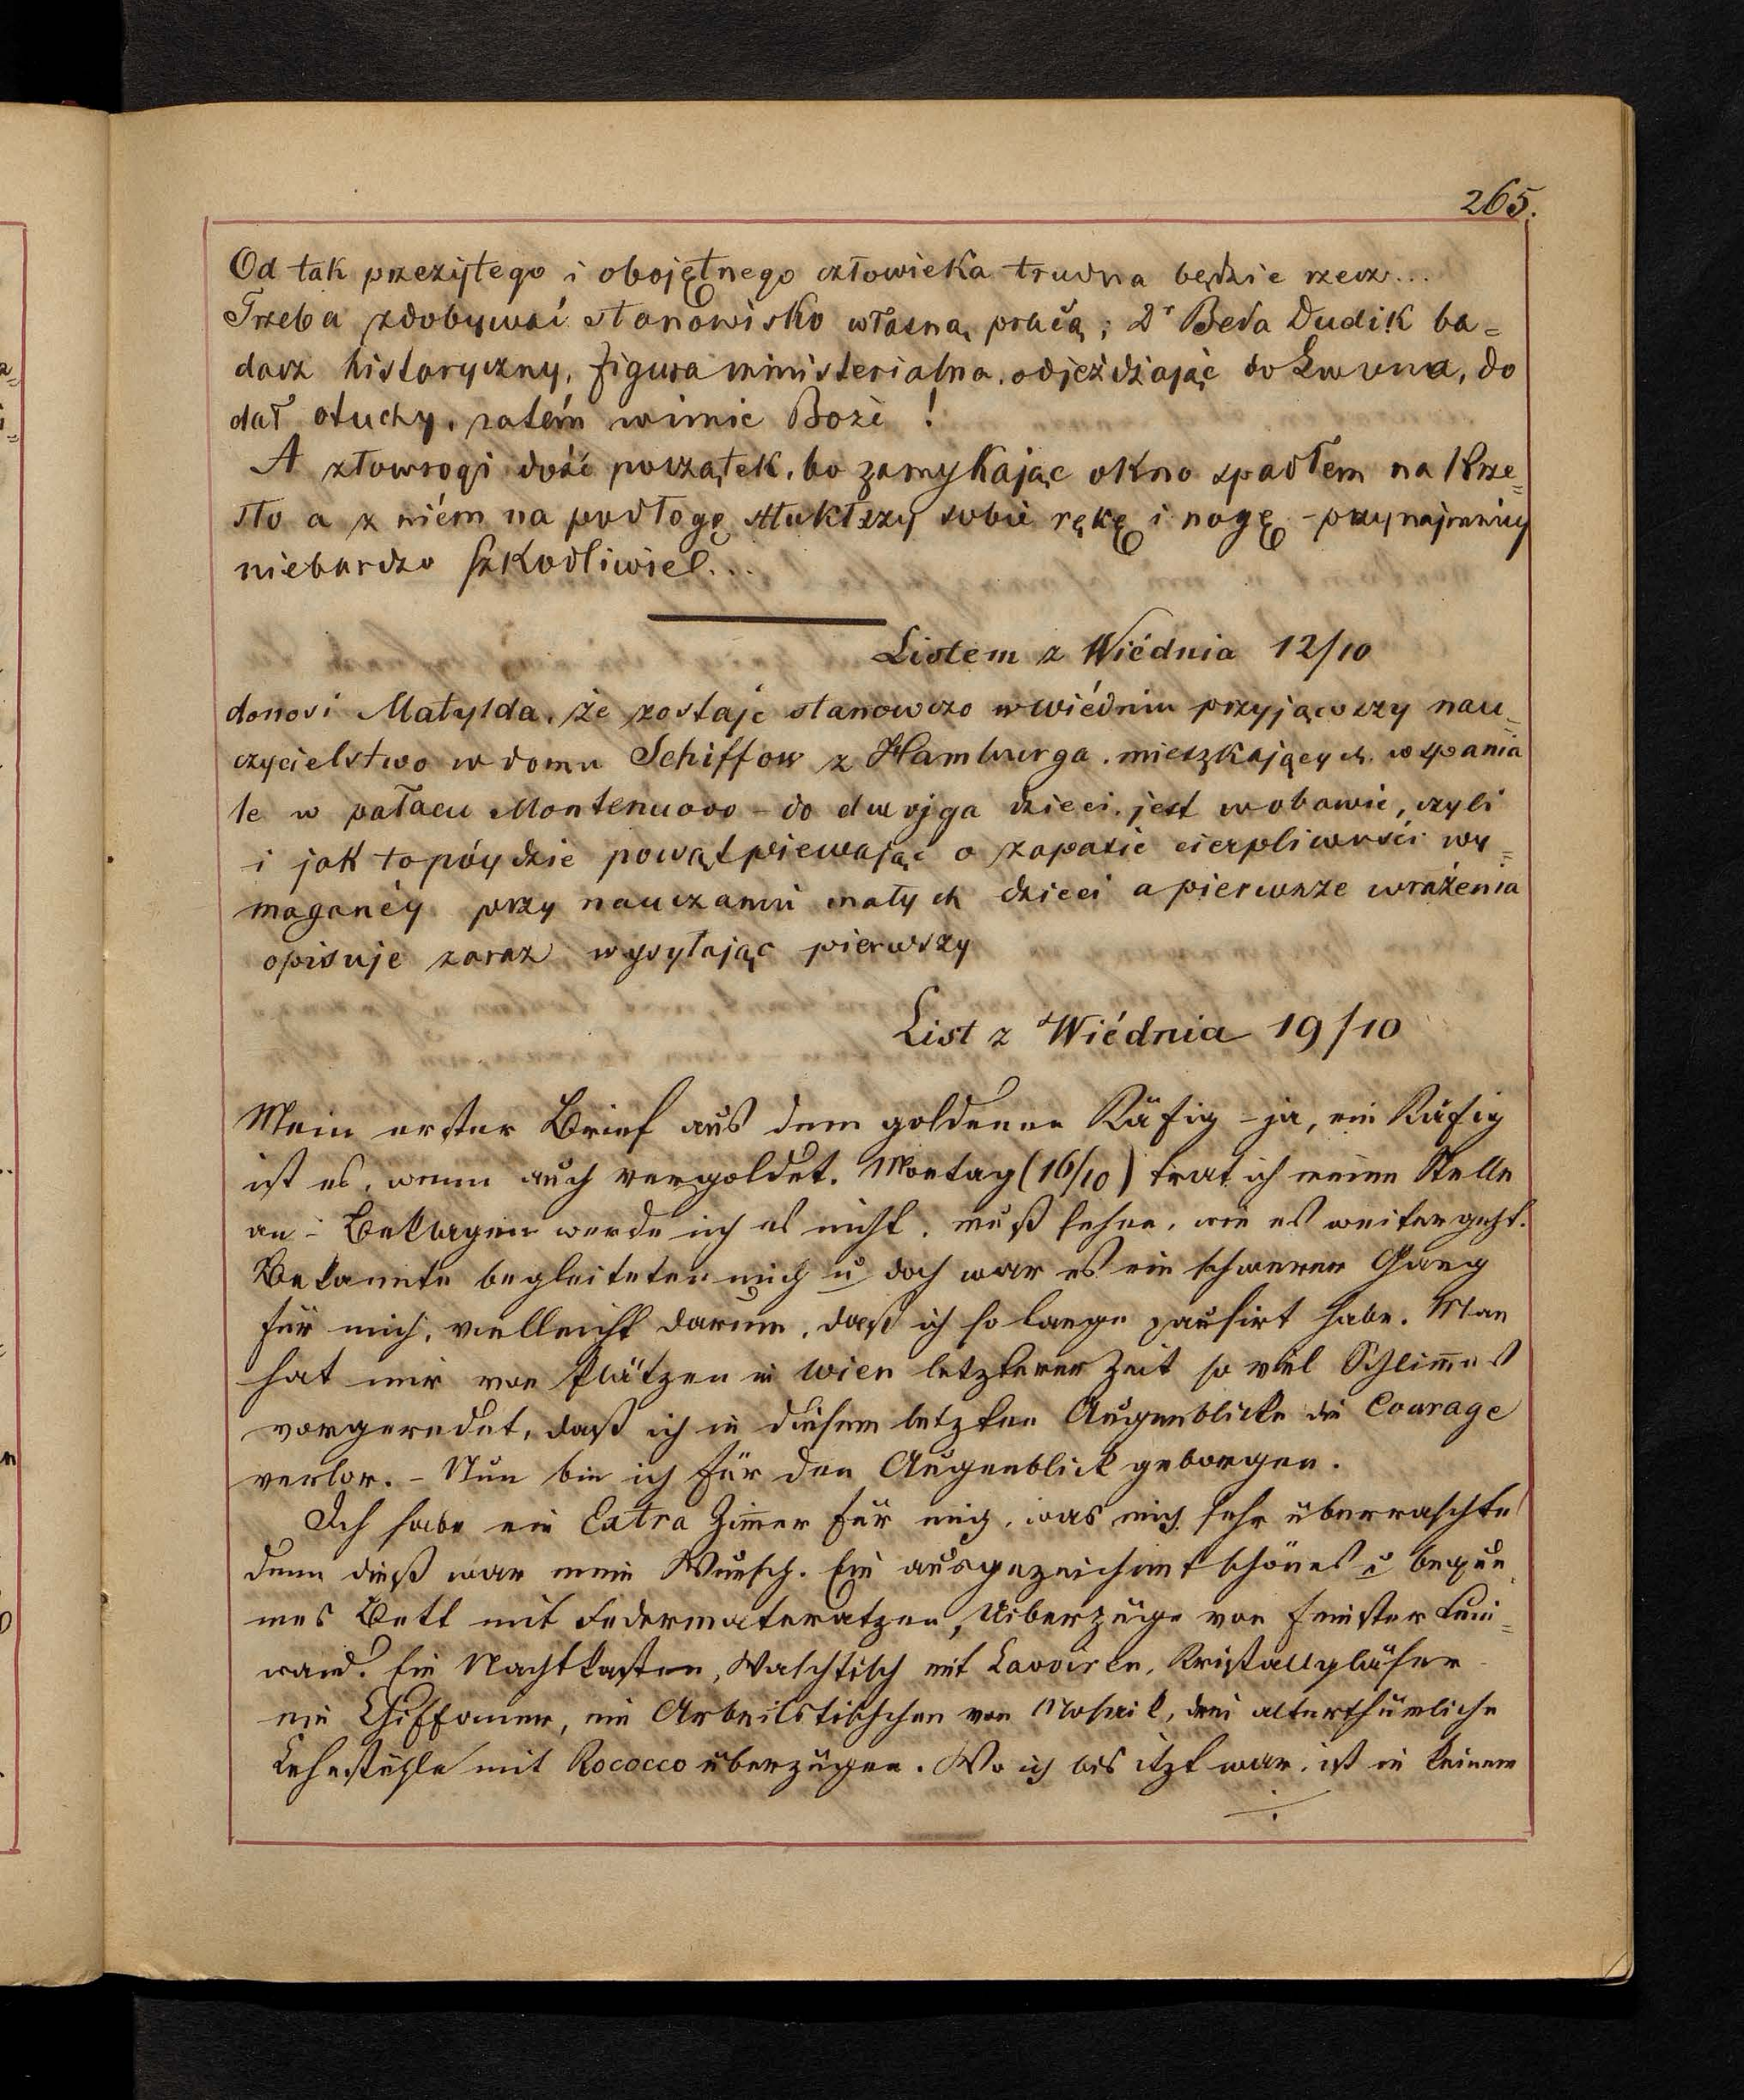 265.
Od tak przeżytego i obojętnego człowieka trudna będzie rzecz...
Trzeba zdobywać stanowisko własną pracą; Dr Beda Dudik ba=
dacz historyczny, figura ministerialna, odjeżdżając do Lwowa, do
dał otuchy, zatém wimie Boże!
A złowrogi dość początek, bo zamykając okno spadłem na krze=
sło a z niém na podłogę stłukłszy sobie rękę i nogę - przynajmniej
niebardzo szkodliwie!...
Listem z Wiédnia 12/10
donosi Matylda, że zostaje stanowczo w Wiédniu przyjąwszy nau=
czycielstwo w domu Schiffow z Hamburga, mieszkających wspania
le w pałacu Montenuovo - do dwojga dzieci, jest w obawie, czyli
i jak to pójdzie powątpiewając o zapasie cierpliwości wy=
maganéj przy nauczaniu małych dzieci a pierwsze wrażenia
opisuje zaraz wysyłając pierwszy
List z Wiédnia 19/10
Mein erster Brief aus dem goldenen Käfig - ja, ein Käfig
ist es, wenn auch vergoldet. Montag (16/10) trat ich meine Stelle
an - Beklagen werde ich es nicht, muß sehen, wie es weiter geht.
Bekannte begleiteten mich u doch war es ein schwerer Gang
für mich, vielleicht darum, daß ich so lange pausirt habe. Man
hat mir von Plätzen in Wien letzterer Zeit so viel Schlim̄es
vorgeredet, daß ich in diesem letzten Augenblicke die Courage
verlor. - Nun bin ich für den Augenblick geborgen.
Ich habe ein Extra Zim̄er für mich, was mich sehr überraschte
denn dieß war mein Wunsch. Ein ausgezeichnet schönes u beque
mes Bett mit Federmateratzen, Uiberzüge von feinster Lein=
wand. Ein Nachtkasten, Waschtisch mit Lavoiren, Kristallgläser
ein Chiffonier, ein Arbeitstischchen von Mosaik, drei alterthümliche
Lehnstühle mit Rococco überzügen. Wo ich bis itzt war, ist in keinem
./.